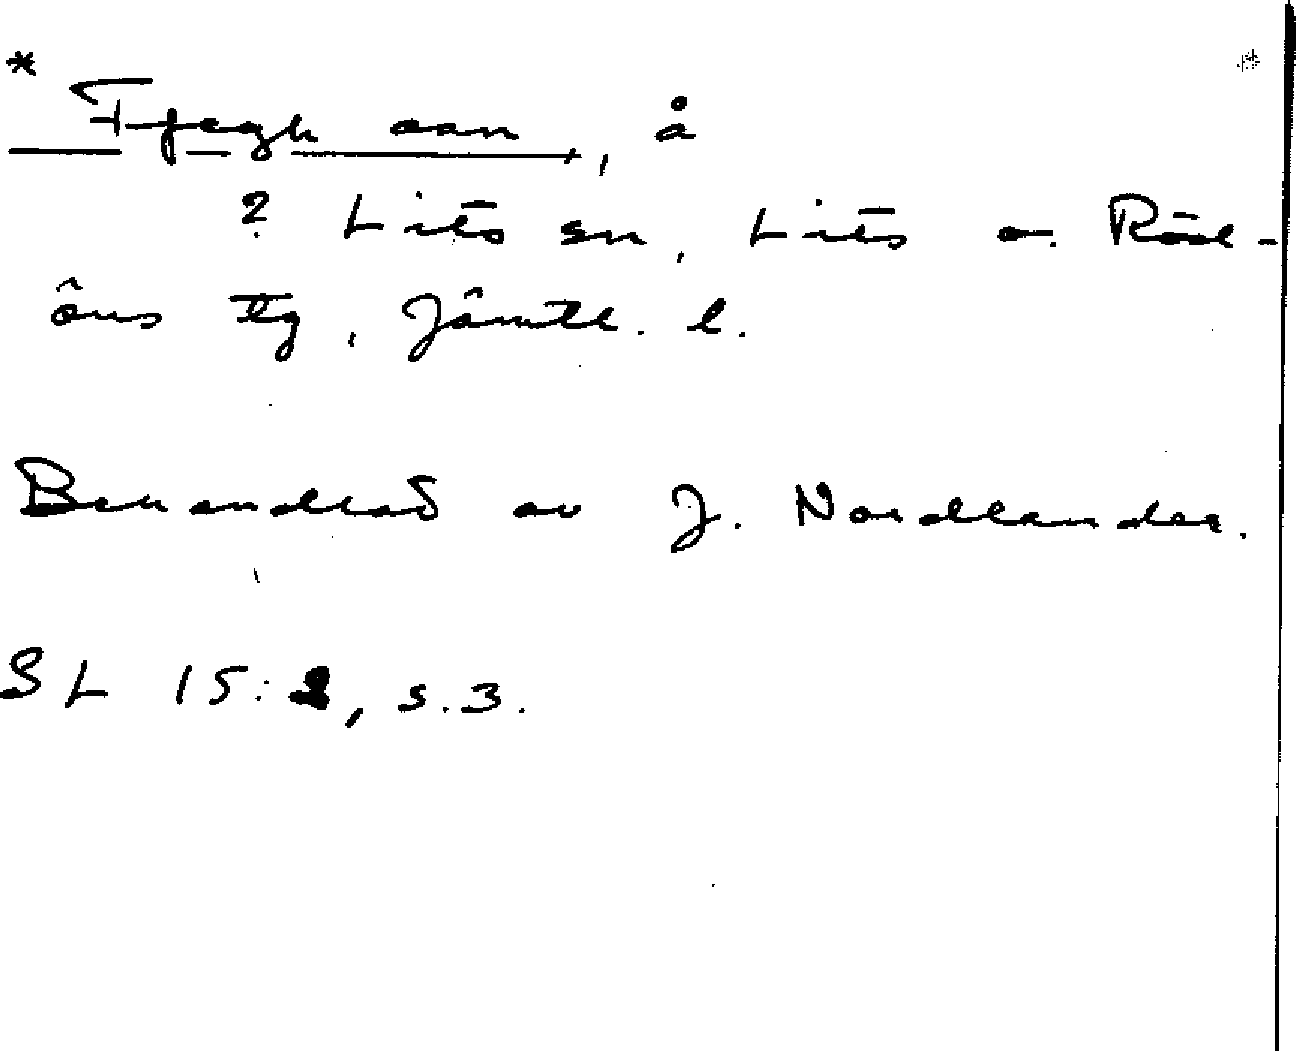 * Fjegh aan, å
? Lits sn, Lits o. Röd-
öns tg, Jämtl. l.
Behandlat av J. Nordlander.
SL 15:2, s.3.